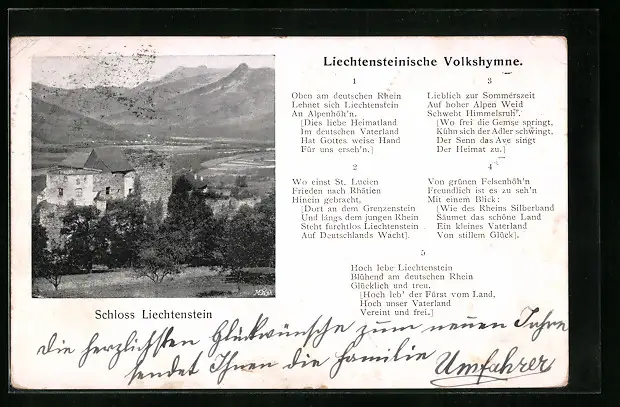 Liechtensteinische Volkshymne.
1
Oben am deutschen Rhein
Lehnet sich Liechtenstein
An Alpenhöh'n.
[Dies liebe Heimatland
Im deutschen Vaterland
Hat Gottes weise Hand
Für uns erseh'n.]
2
Wo einst St. Lucien
Frieden nach Rhätien
Hinein gebracht,
[Dort an dem Grenzenstein
Und längs dem jungen Rhein
Steht furchtlos Liechtenstein
Auf Deutschlands Wacht].
3
Lieblich zur Sommerszeit
Auf hoher Alpen Weid
Schwebt Himmelsruh'.
[Wo frei die Gemse springt,
Kühn sich der Adler schwingt,
Der Senn das Ave singt
Der Heimat zu.]
4
Von grünen Felsenhöh'n
Freundlich ist es zu seh'n
Mit einem Blick:
[Wie des Rheins Silberband
Säumet das schöne Land
Ein kleines Vaterland
Von stillem Glück].
5
Hoch lebe Liechtenstein
Blühend am deutschen Rhein
Glücklich und treu.
[Hoch leb' der Fürst vom Land,
Hoch unser Vaterland
Vereint und frei.]
Schloss Liechtenstein
Die herzlichsten Glückwünsche zum neuen Jahre
sendet Ihnen die Familie Umfahrer